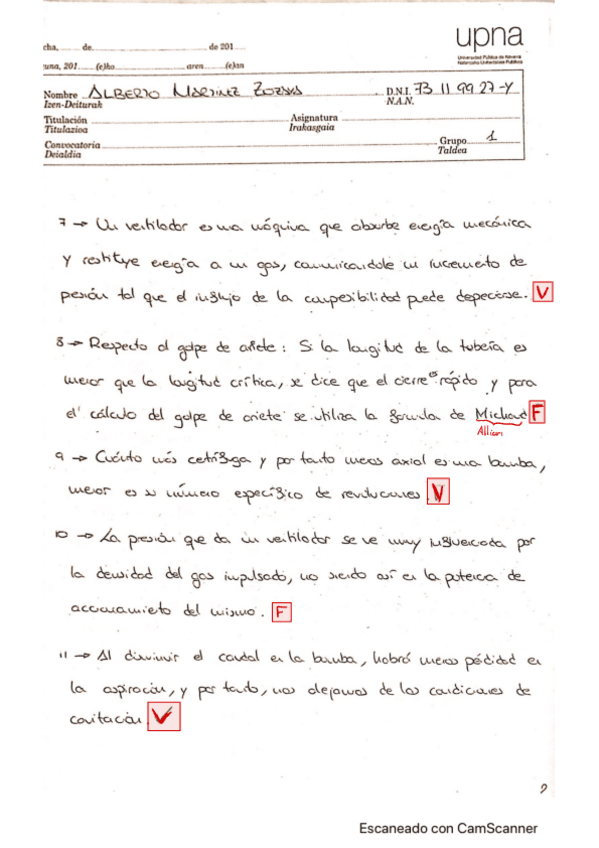 upna
Universidad Pública de Navarra
Nafarroako Unibertsitate Publikoa
cha, de de 201
una, 201 (e)ko aren (e)an
Nombre ALBERTO MARTINEZ D.N.I. 73 11 99 27-Y
Izen-Deiturak N.A.N.
Titulación Asignatura
Titulazioa Irakasgaia
Convocatoria Grupo 1
Deialdia Taldea
7 → Un ventilador es una máquina que absorbe energía mecánica
y restituye energía a un gas, comunicandole un incremento de
presión tal que el influjo de la compresibilidad puede despreciarse. V
8 → Respecto al golpe de ariete: Si la longitud de la tubería es
menor que la longitud crítica, se dice que el cierre es rápido y para
el cálculo del golpe de ariete se utiliza la formula de Michaud F
Allievi
9 → Cuánto más centrífuga y por tanto menos axial es una bomba,
menor es su número específico de revoluciones V
10 → La presión que da un ventilador se ve muy influenciada por
la densidad del gas impulsado, no siendo así en la potencia de
accionamiento del mismo. F
11 → Al disminuir el caudal en la bomba, habrá menos pérdidad en
la aspiración, y por tanto, nos alejamos de las condiciones de
cavitación V
2
Escaneado con CamScanner